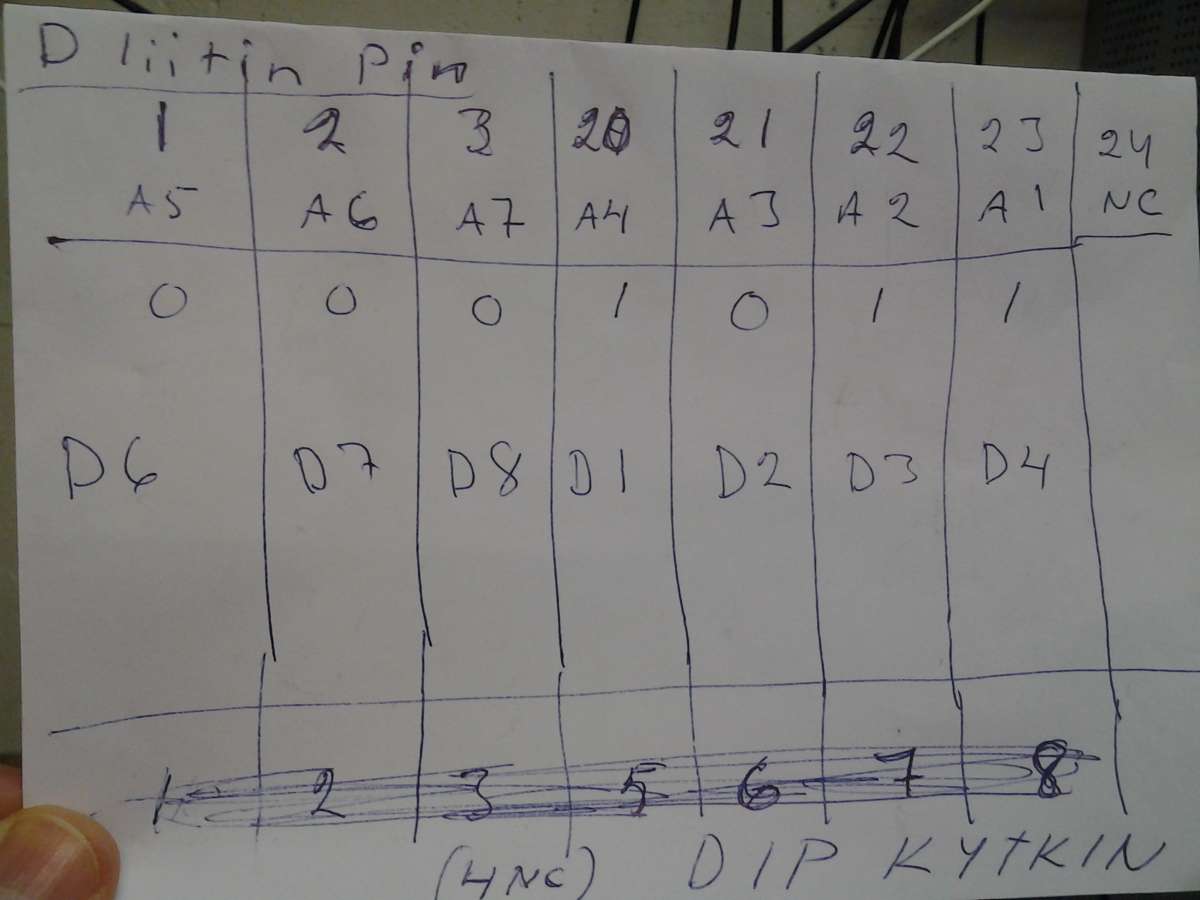 D liitin Pin
1 2 3 20 21 22 23 24
A5 A6 A7 A4 A3 A2 A1 NC
0 0 0 1 0 1 1
D6 D7 D8 D1 D2 D3 D4
1 2 3 5 6 7 8
(4NC) DIP KYTKIN